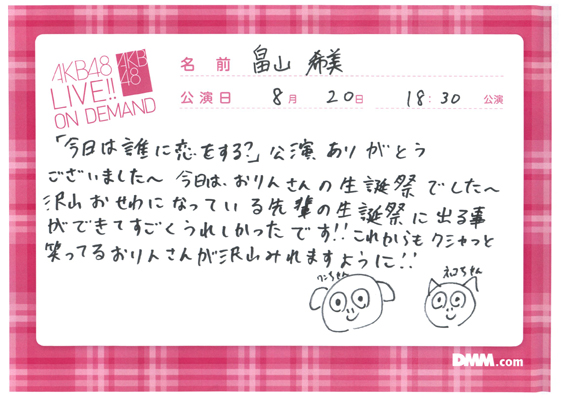 AKB48
LIVE!!
ON DEMAND
AKB
48
名前 畠山 希美
公演日 8月 20日 18:30 公演
「今日は誰に恋をする?」公演、ありがとう
ございました〜 今日は、おりんさんの生誕祭でした〜
沢山おせわになっている先輩の生誕祭に出る事
ができてすごくうれしかったです!! これからもクシャっと
笑ってるおりんさんが沢山みれますように!!
ワンちゃん
ネコちゃん
DMM.com